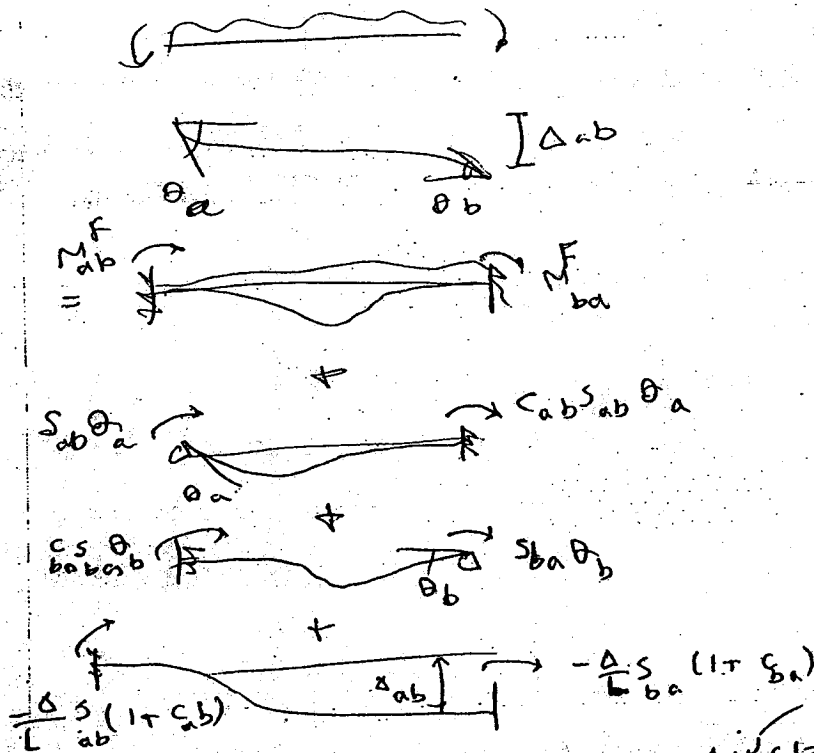 Δab
θa θb
M^F_ab M^F_ba
=
+
S_ab θ_a C_ab S_ab θ_a
θa
+
C_ba S_ba θ_b S_ba θ_b
θ_b
+
Δ_ab
-Δ/L S_ab (1+ C_ab) -Δ/L S_ba (1+ C_ba)